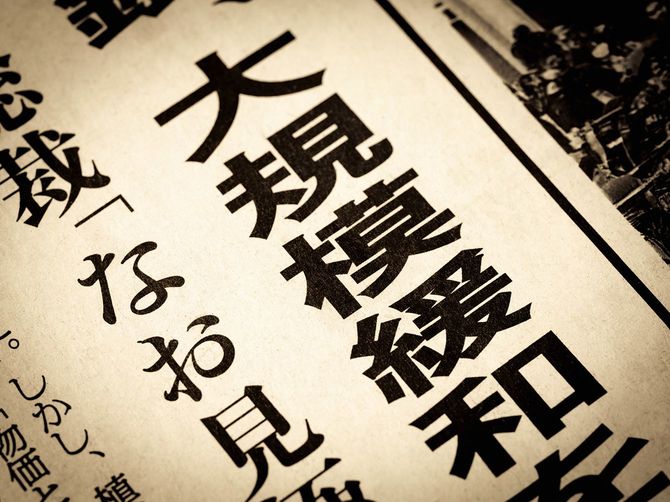 大規模緩和
総裁「なお見
。しかし、植
物価